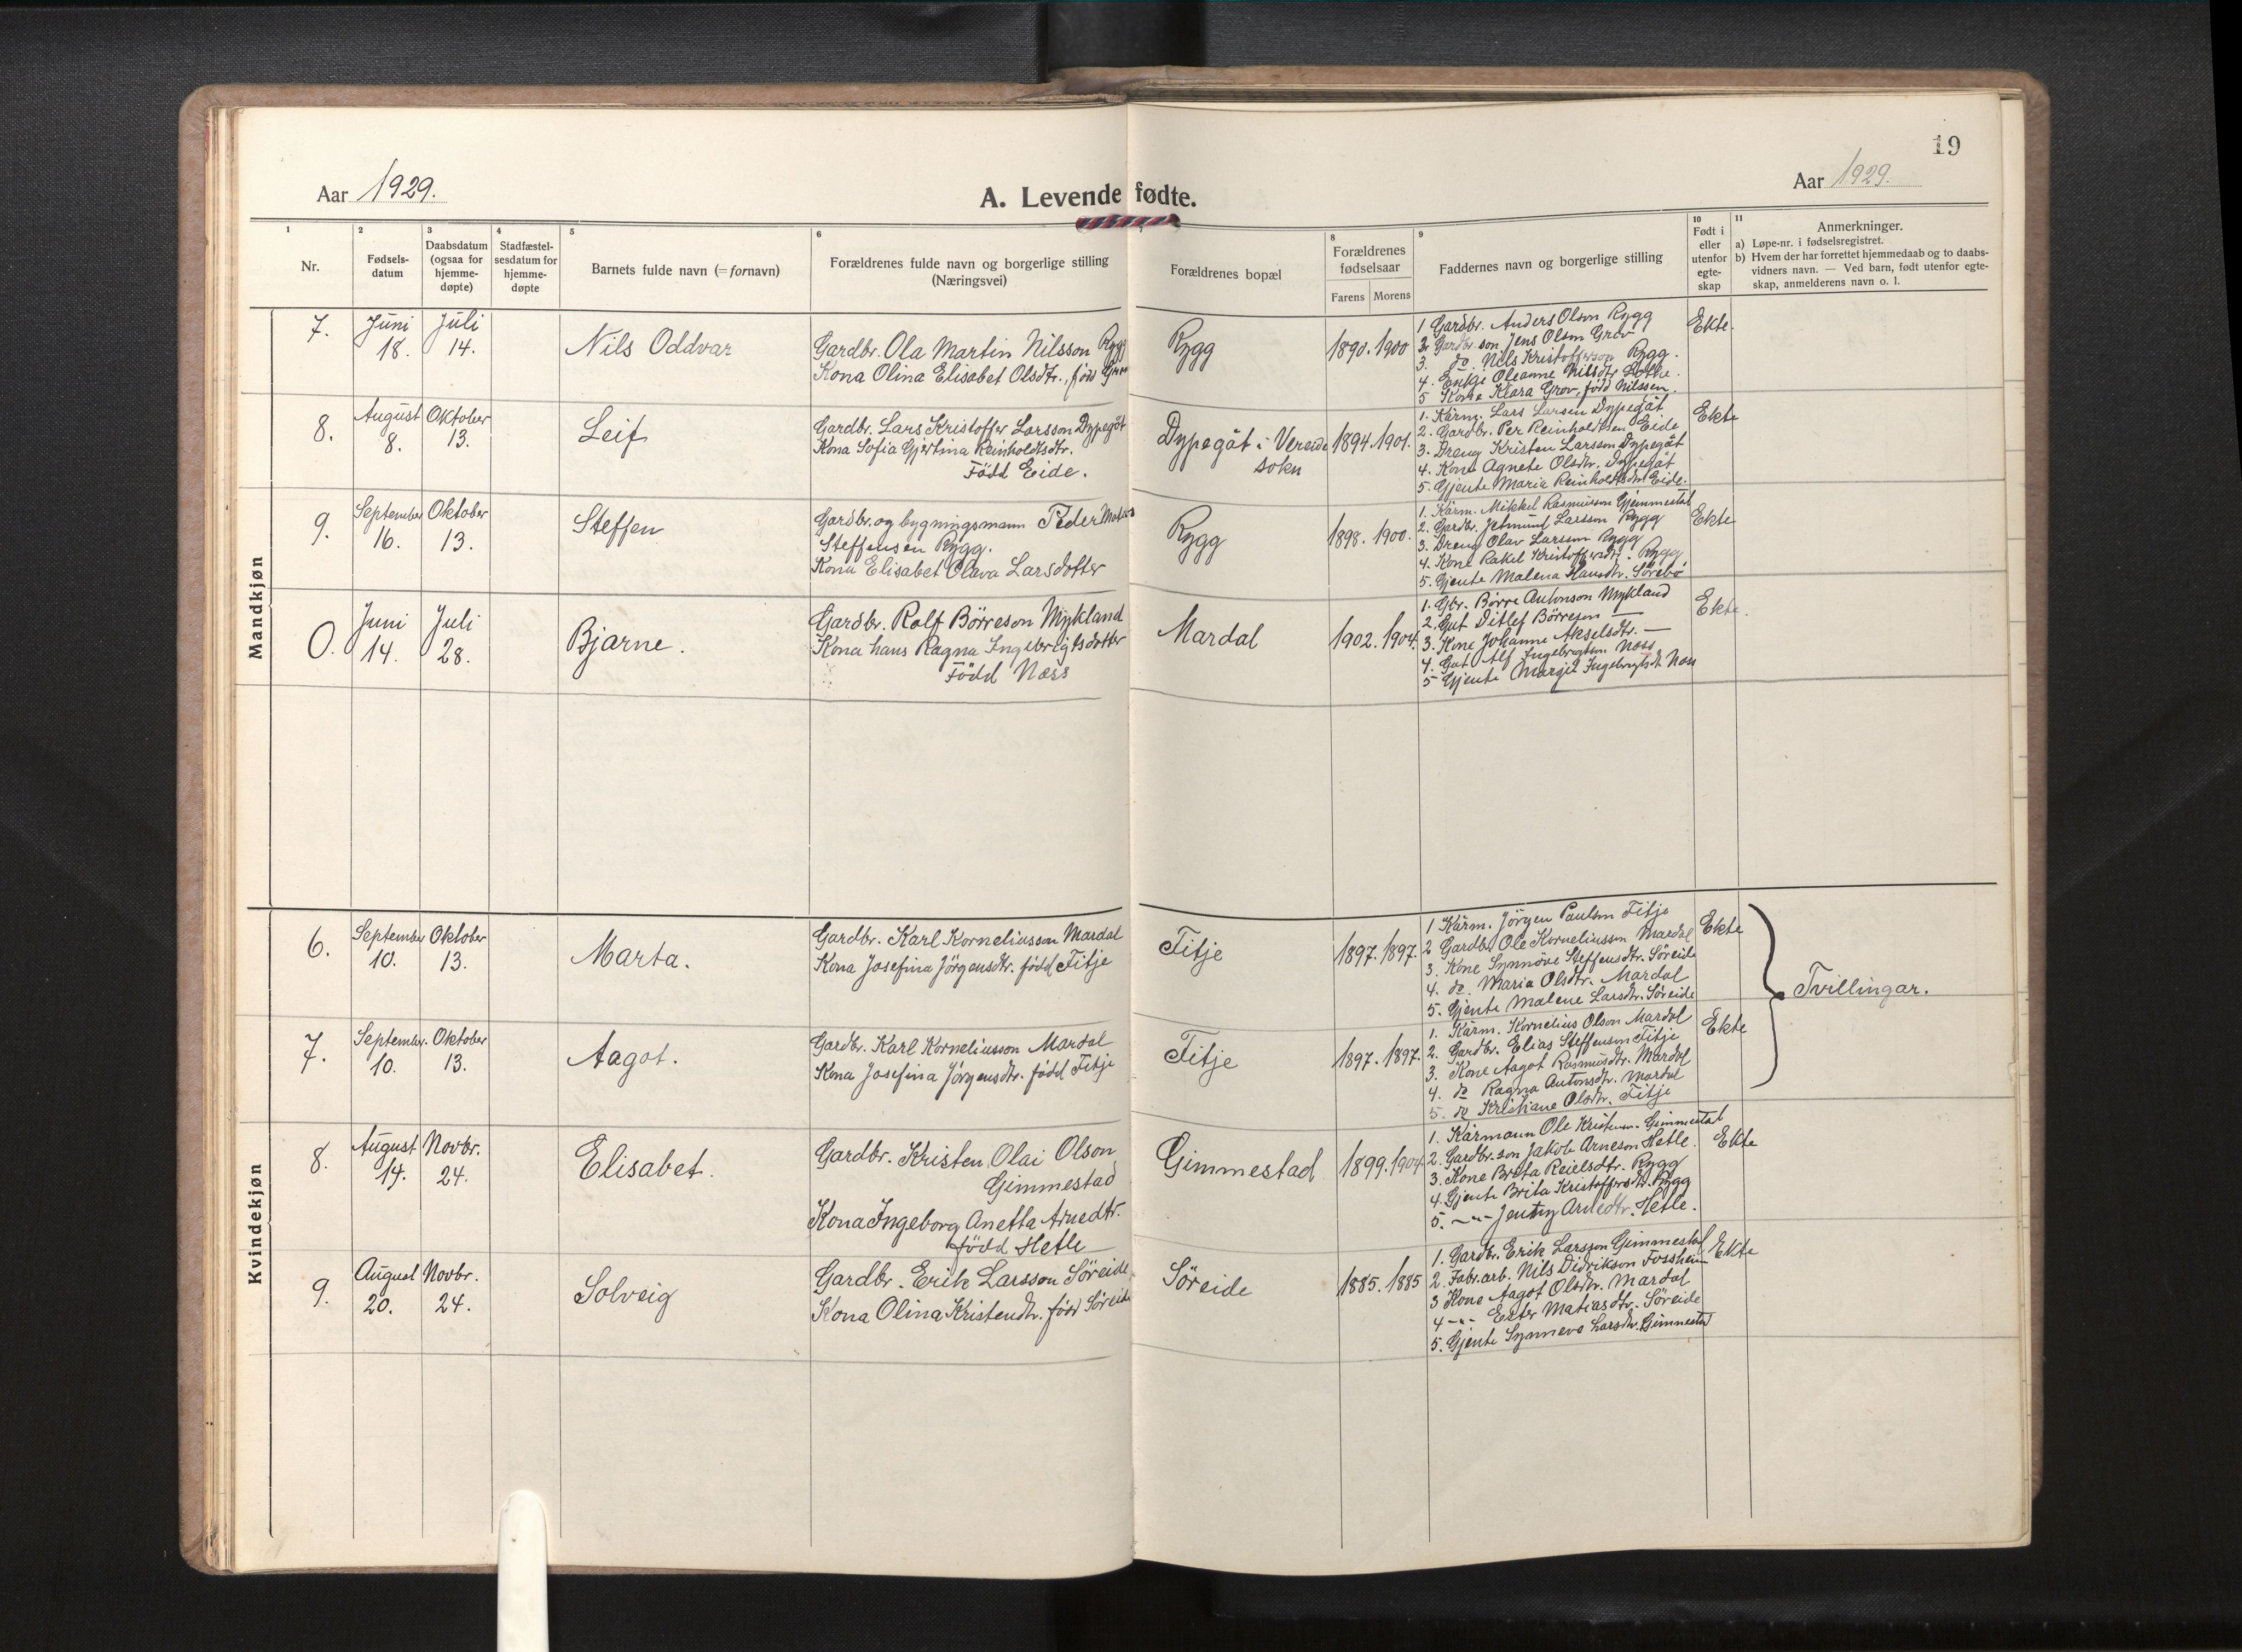 19
Aar 1929.
A. Levende fødte.
Aar 1929.
1
Nr.
2
Fødsels-
datum
3
Daabsdatum
(ogsaa for
hjemme-
døpte)
4
Stadfæstel-
sesdatum for
hjemme-
døpte
5
Barnets fulde navn (= fornavn)
6
Forældrenes fulde navn og borgerlige stilling
(Næringsvei)
7
Forældrenes bopæl
8
Forældrenes
fødselsaar
Farens
Morens
9
Faddernes navn og borgerlige stilling
10
Født i
eller
utenfor
egte-
skap
11
Anmerkninger.
a) Løpe-nr. i fødselsregistret.
b) Hvem der har forrettet hjemmedaab og to daabs-
vidners navn. — Ved barn, født utenfor egte-
skap, anmelderens navn o. l.
Mandkjøn
7.
Juni
18.
Juli
14.
Nils Oddvar
Gardbr. Ola Martin Nilsson Rygg
Kona Olina Elisabet Olsdtr., född Grov
Rygg
1890. 1900
1 Gardbr. Anders Olson Rygg
2. Gardbr. son Jens Olson Grov
3. do. Nils Kristofferson Rygg.
4. Enkje Oleanne Nilsdtr. Lothe.
5 Kone Klara Grov, född Nilssen.
Ekte.
8.
August
8.
Oktober
13.
Leif
Gardbr. Lars Kristoffer Larsson Dypegåt
Kona Sofia Gjertina Reinholdtsdtr.
Född Eide.
Dypegåt i Vereide
sokn
1894. 1901.
1. Kårm. Lars Larsen Dypegåt
2. Gardbr. Per Reinholdtsen Eide
3. Dreng Kristen Larsson Dypegåt
4. Kone Agnete Olsdtr. Dypegåt
5. Gjente Maria Reinholdtsdtr. Eide.
Ekte
9.
September
16.
Oktober
13.
Steffen
Gardbr. og bygningsmann Peder
Steffensen Rygg.
Kona Elisabet Olava Larsdotter
Rygg
1898. 1900.
1. Kårm. Mikkel Rasmusson Gjemmestad
2. Gardbr. Jetmund Larsson Rygg
3. Dreng Olav Larsson Rygg
4. Kone Rakel Kristoffersdtr. Rygg
5. Gjente Malena Hansdtr. Sörebö
Ekte
0.
Juni
14.
Juli
28.
Bjarne.
Gardbr. Rolf Börreson Mykland
Kona hans Ragna Ingebrigtsdotter
Född Næss
Mardal
1902. 1904.
1. Gbr. Börre Antonson Mykland
2. Gut Ditlef Börreson —
3. Kone Johanne Akselsdtr. —
4. Gut Alf Ingebrigtson Næss
5 Gjente Margit Ingebrigtsdt. Næss
Ekte.
Kvindekjøn
6.
September
10.
Oktober
13.
Marta.
Gardbr. Karl Korneliusson Mardal
Kona Josefina Jörgensdtr. född Fitje
Fitje
1897. 1897.
1 Kårm. Jörgen Paulson Fitje
2 Gardbr. Ole Korneliusson Mardal
3. Kone Synnöve Steffensdtr. Söreide
4. do. Maria Olsdtr. Mardal
5. Gjente Malene Larsdtr. Söreide
Ekte
Tvillingar.
7.
September.
10.
Oktober
13.
Aagot.
Gardbr. Karl Korneliusson Mardal
Kona Josefina Jörgensdtr. född Fitje
Fitje
1897. 1897.
1. Kårm. Kornelius Olson Mardal
2. Gardbr. Elias Steffenson Fitje
3. Kone Aagot Rasmusdtr. Mardal
4. do Ragna Antonsdtr. Mardal
5. do Kristiane Olsdtr. Fitje
Ekte
8.
August
14.
Novbr.
24.
Elisabet.
Gardbr. Kristen Olai Olson
Gimmestad
Kona Ingeborg Anetta Arnedtr.
född Hetle
Gimmestad
1899. 1904
1. Kårmann Ole Kristenson Gimmestad
2. Gardbr. son Jakob Arneson Hetle.
3. Kone Brita Reielsdtr. Rygg
4. Gjente Brita Kristoffersdtr. Rygg
5. —"— Jenny Arnedtr. Hetle.
Ekte
9.
August
20.
Novbr.
24.
Solveig
Gardbr. Erik Larsson Söreide
Kona Olina Kristendtr. född Söreide
Söreide
1885. 1885
1. Gardbr. Erik Larsson Gimmestad
2. Fabr.arb. Nils Didrikson Fossheim
3 Kone Aagot Olsdtr. Mardal
4 —"— Ester Matiasdtr. Söreide
5. Gjente Synneve Larsdtr. Gimmestad
Ekte